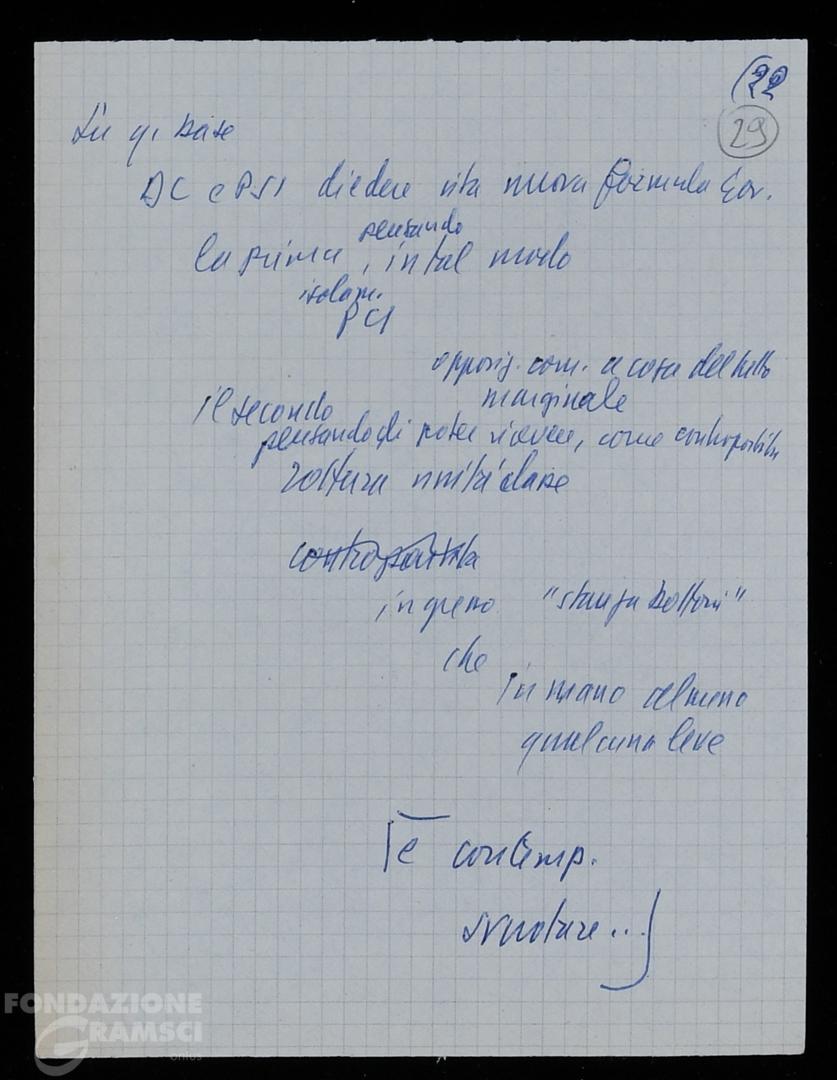 (22
29
Su q. base
DC e PSI diedere vita nuova formula Gov.
pensando
la prima, in tal modo
isolam.
PCI
opposiz. com. a cosa del tutto
marginale
il secondo
pensando di poter ricevere, come contropartita
rottura unità classe
contropartita
ingresso "stanza bottoni"
che
in mano almeno
qualcuna leve
[e contemp.
svuotare...]
FONDAZIONE
GRAMSCI
onlus